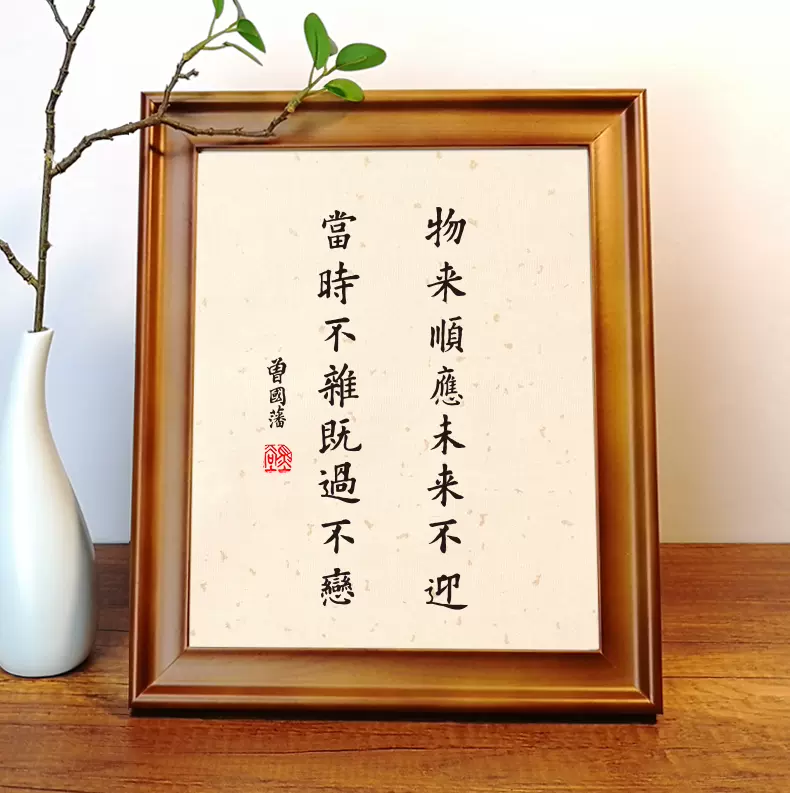 物来順應未来不迎
當時不雜既過不戀
曾國藩